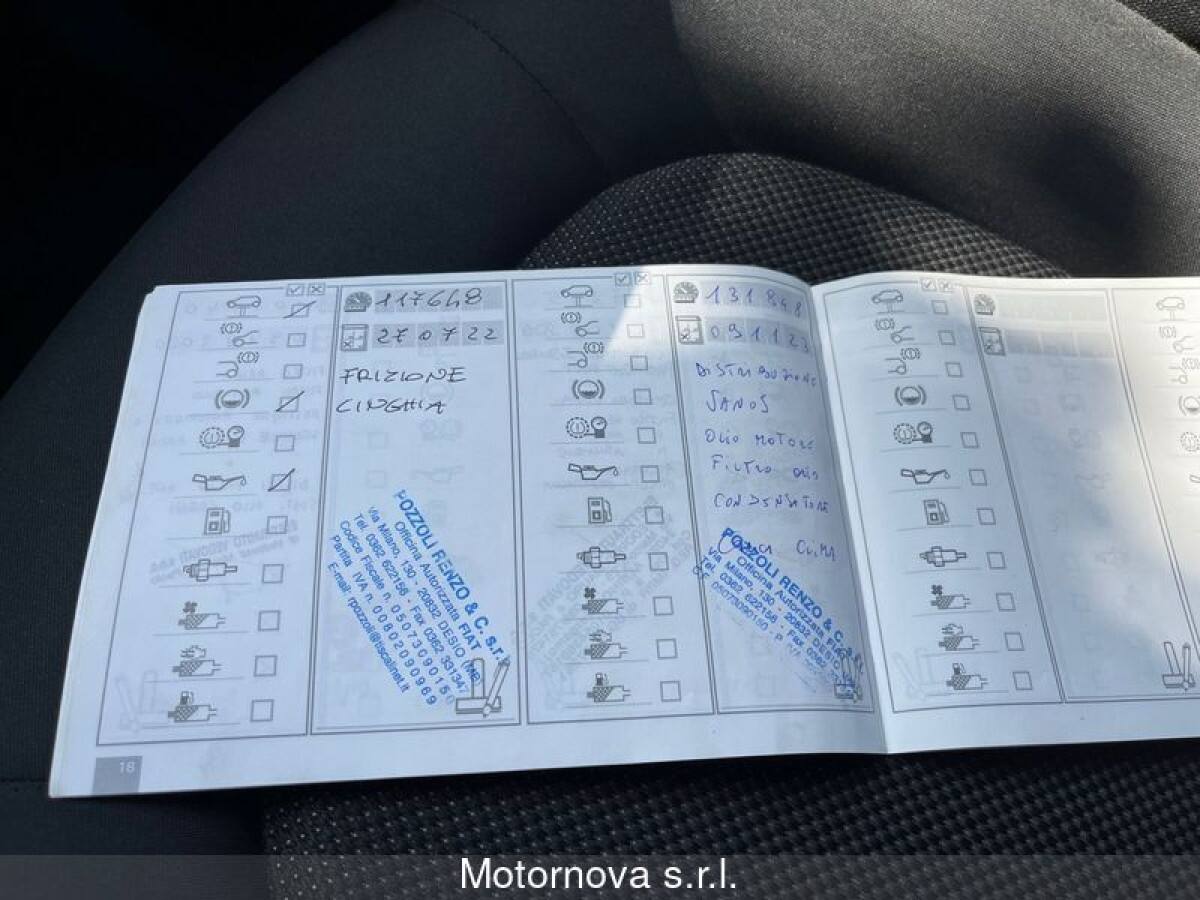 117648
27 07 22
FRIZIONE
CINGHIA
POZZOLI RENZO & C. s.r.l.
Officina Autorizzata FIAT
Via Milano, 130 - 20832 DESIO (MB)
Tel. 0362 622156 - Fax 0362 331347
Codice Fiscale n. 05073090150
Partita IVA n. 00802090969
E-mail: rpozzoli@tiscalinet.it
131848
09 11 23
DISTRIBUZIONE
OLIO MOTORE
FILTRO OLIO
CONDENSATORE
CLIMA
POZZOLI RENZO & C. s.r.l.
Officina Autorizzata FIAT
Via Milano, 130 - 20832 DESIO
Tel. 0362 622156 - Fax 0362
C.F. 05073090150 - P. IVA
18
Motornova s.r.l.